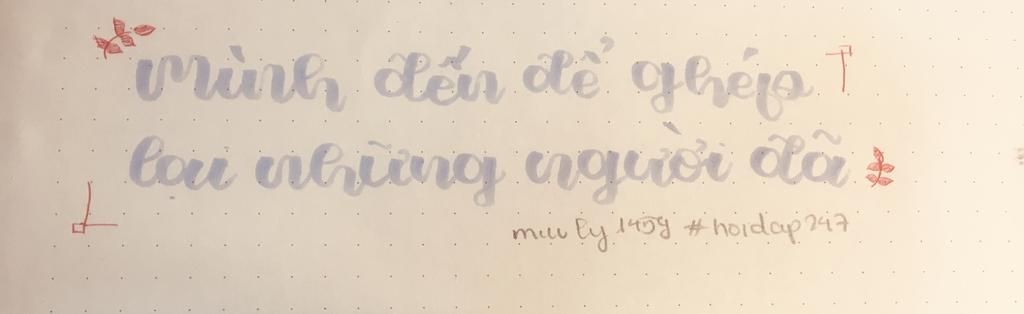 mình đến để ghép
lại những người đã
mưu ly 1459 #hoidap247